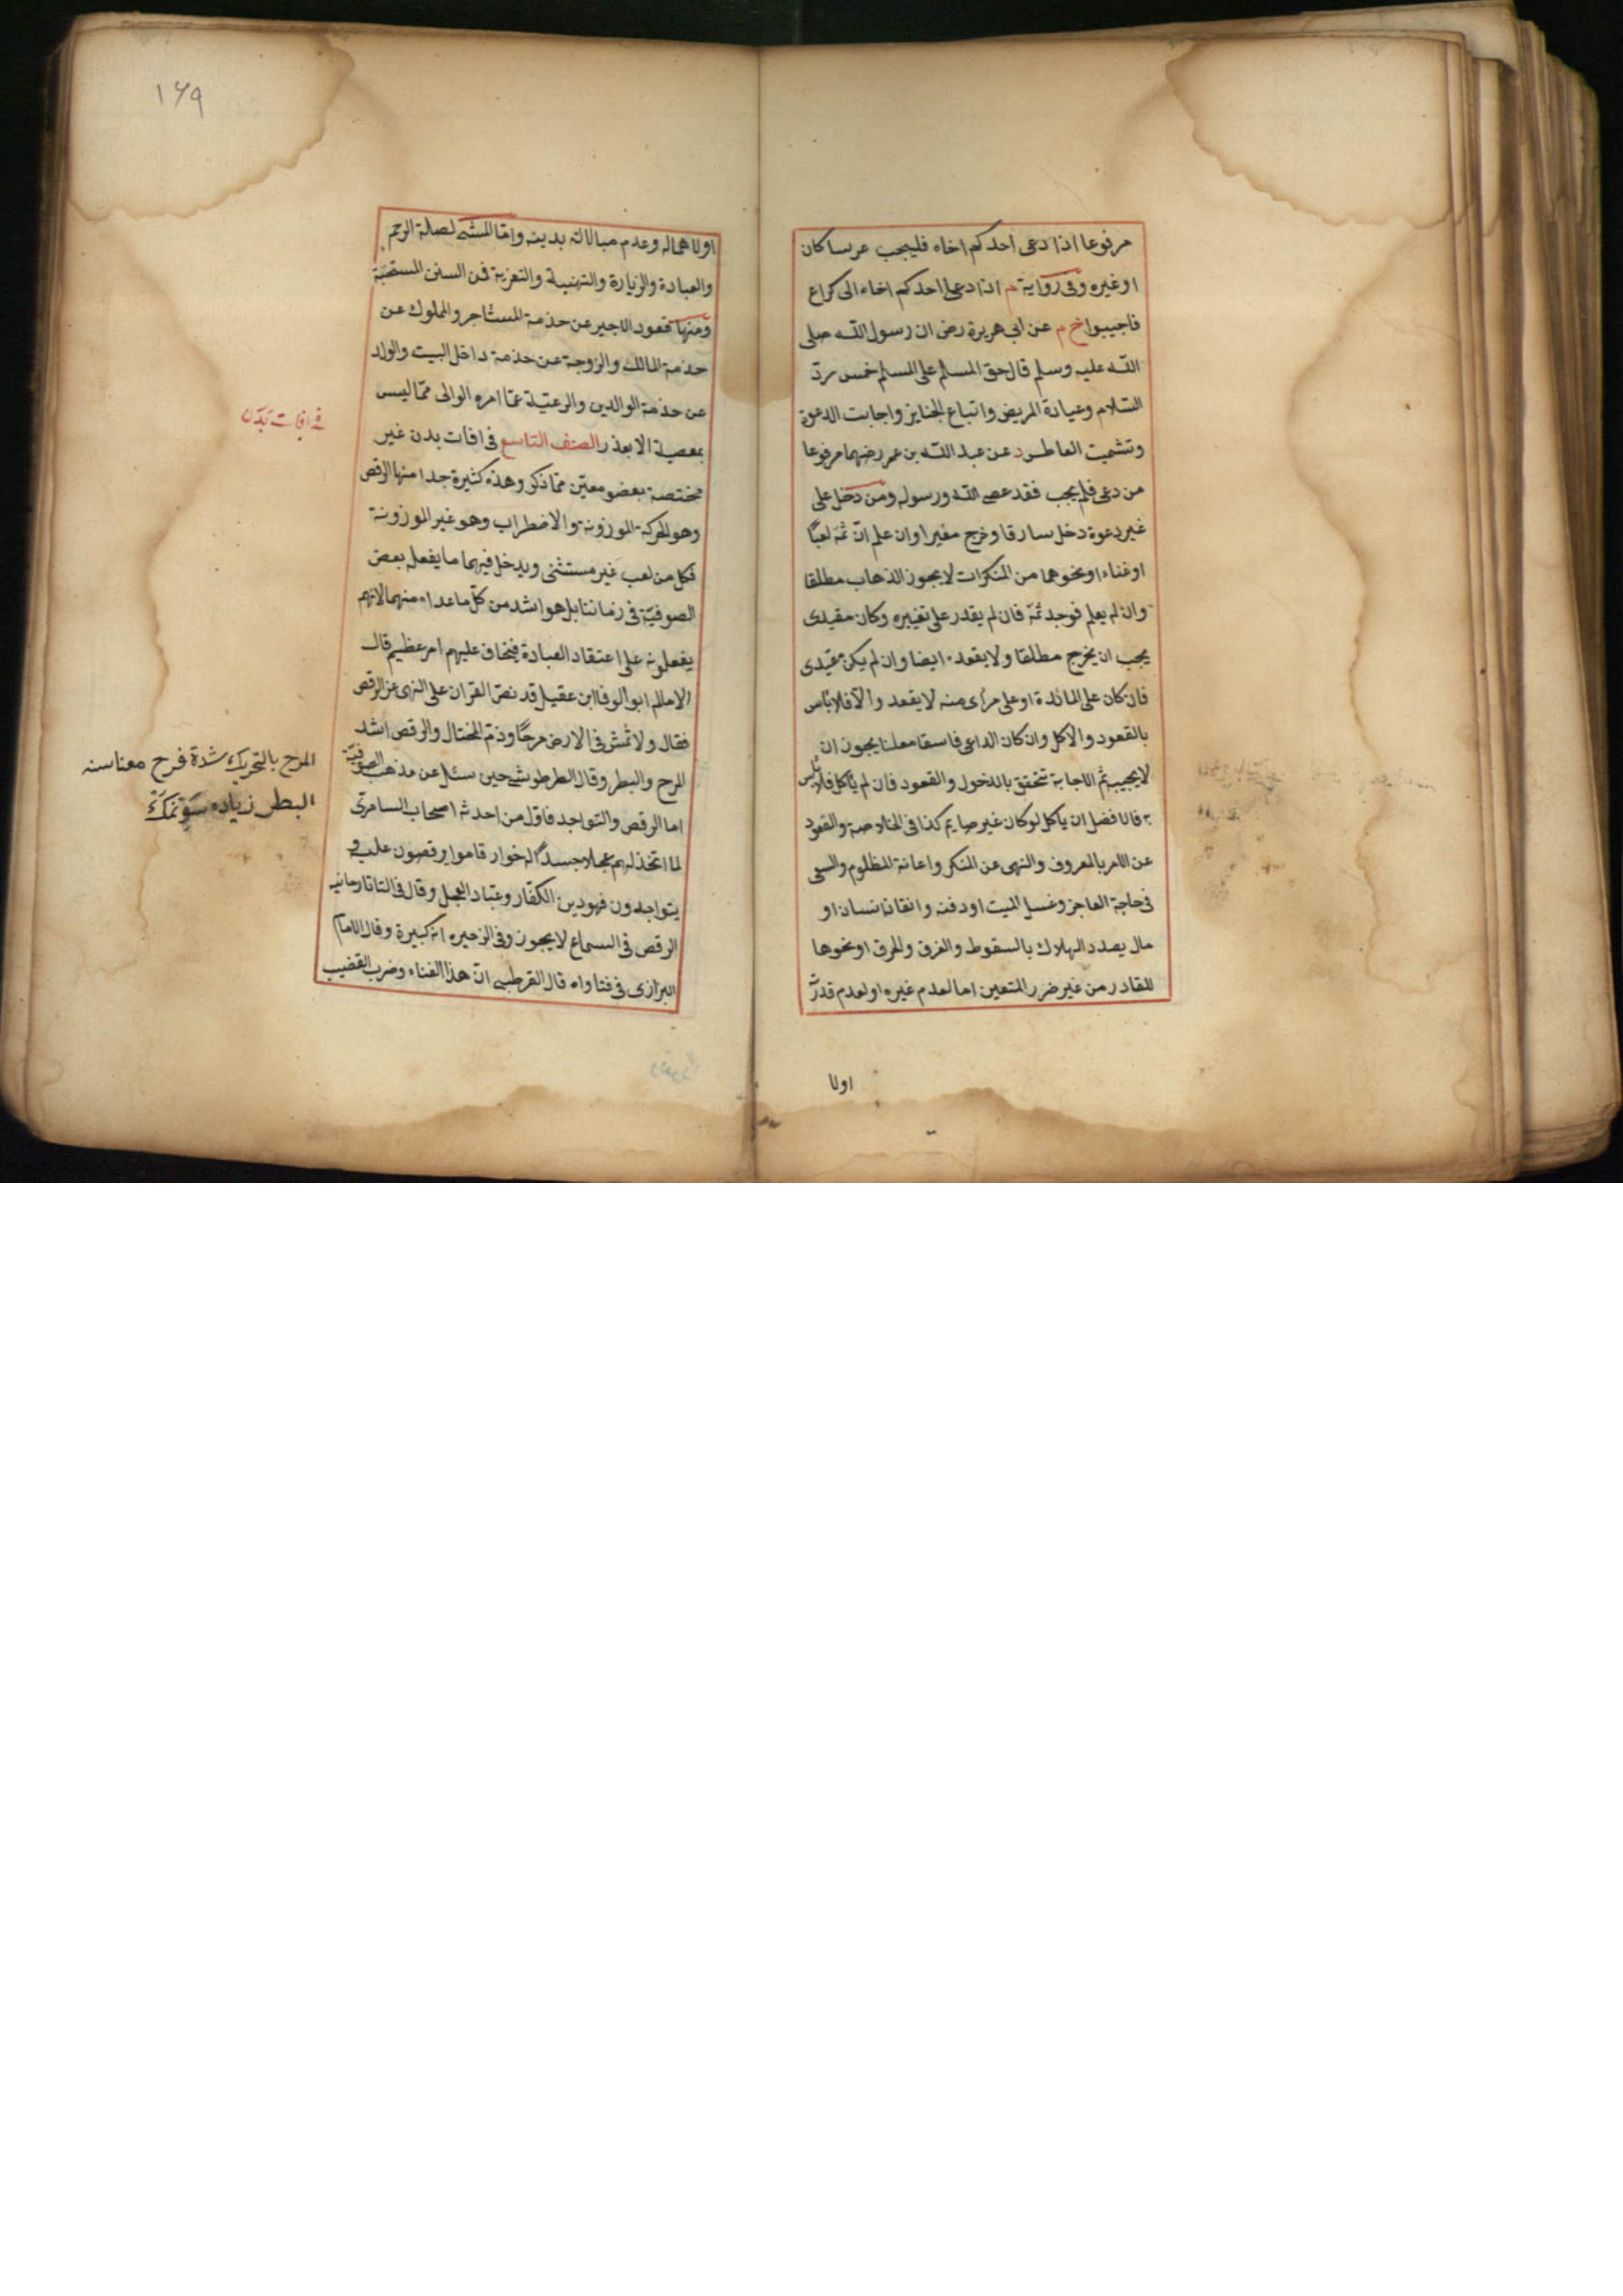 مرفوعا اذا دعى احدكم اخاه فليجب عرسا كان
او غيره وفى رواية م اذا دعى احدكم اخاه الى كراع
فاجيبوا خ م عن ابى هريرة رض ان رسول الله صلى
الله عليه وسلم قال حق المسلم على المسلم خمس ردّ
السّلام وعيادة المريض واتباع الجنايز واجابت الدعوة
وتشميت العاطس د عن عبد الله بن عمر رضهما مرفوعا
من دعى فلم يجب فقد عصى الله ورسوله ومن دخل على
غير دعوة دخل سارقا وخرج مغيرا وان علم انّ ثمّه لعبًا
او غناء او نحوهما من المنكرات لا يجوز الذهاب مطلقا
وان لم يعلم فوجد ثمّه فان لم يقدر على تغييره وكان مقيدى
يجب ان يخرج مطلقا ولا يقعد ايضا وان لم يكن مقيّدى
فان كان على المائدة او على مرأى منه لا يقعد والّا فلا بأس
بالقعود والاكل وان كان الداعى فاسقا معلنا يجوز ان
لا يجيب ثم الاجابة تتحقق بالدخول والقعود فان لم يأكل فلا بأس
به فالافضل ان ياكل لو كان غير صايم كذا فى الخلاصة والقعود
عن الامر بالمعروف والنهى عن المنكر واعانة المظلوم والسعى
فى حاجة العاجز وغسل الميت او دفنه وانقاذ انسان او
مال يصدد الهلاك بالسقوط والغرق والحرق او نحوها
للقادر من غير ضرر المتعين اما لعدم غيره او لعدم قدرّ
اولا
١٦٩
اولاهماله وعدم مبالاته بدينه وامّا المشى لصلة الرحم
والعبادة والزيارة والتهنية والتعزية فمن السنن المستحبّة
ومنها قعود الاجير عن خدمة المستأجر والمملوك عن
خدمة المالك والزوجة عن خدمة داخل البيت والولد
عن خدمة الوالدين والرعيّة عمّا امره الوالى ممّا ليس
بمعصية الا بعذر الصنف التاسع فى افات بدن غير
فى افات بدن
مختصة بعضو معيّن ممّا ذكر وهذه كثيرة جدا منها الرقص
وهو الحركة الموزونة والاضطراب وهو غير الموزونة
فكل من لعب غير مستثنى ويدخل فيهما ما يفعله بعض
الصوفيّة فى زماننا بل هو اشد من كلّ ما عداه منهما لانهم
يفعلونه على اعتقاد العبادة فيخاف عليهم امر عظيم قال
الامام ابو الوفا ابن عقيل قد نصّ القرآن على النهى عن الرقص
فقال ولا تمش فى الارض مرحًا وذمّ المختال والرقص اشد
المرح والبطر وقال الطرطوشى حين سئل عن مذهب الصوفيّة
المرح بالتحريك شدة فرح معناسنه
البطر زياده سَوِنمَكَ
اما الرقص والتواجد فاوّل من احدثه اصحاب السامرى
لما اتخذ لهم عجلا جسدًا له خوار قاموا يرقصون عليه و
يتواجدون فهو دين الكفّار وعبّاد العجل وقال فى التاتارخانيه
الرقص فى السماع لا يجوز وفى الذخيره انه كبيرة وقال الامام
البزازى فى فتاواه قال القرطبى انّ هذا الغناء وضرب القضيب